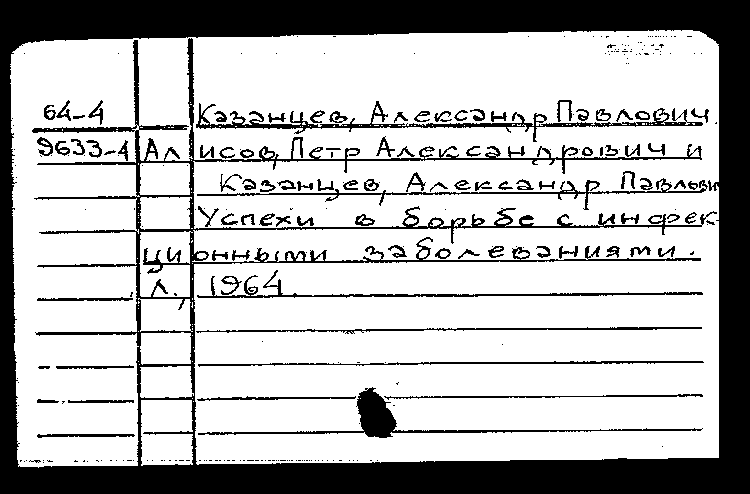 64-4 Казанцев, Александр Павлович.
9633-4 Алисов, Петр Александрович и
Казанцев, Александр Павлови
Успехи в борьбе с инфек-
ционными заболеваниями.
Л., 1964.